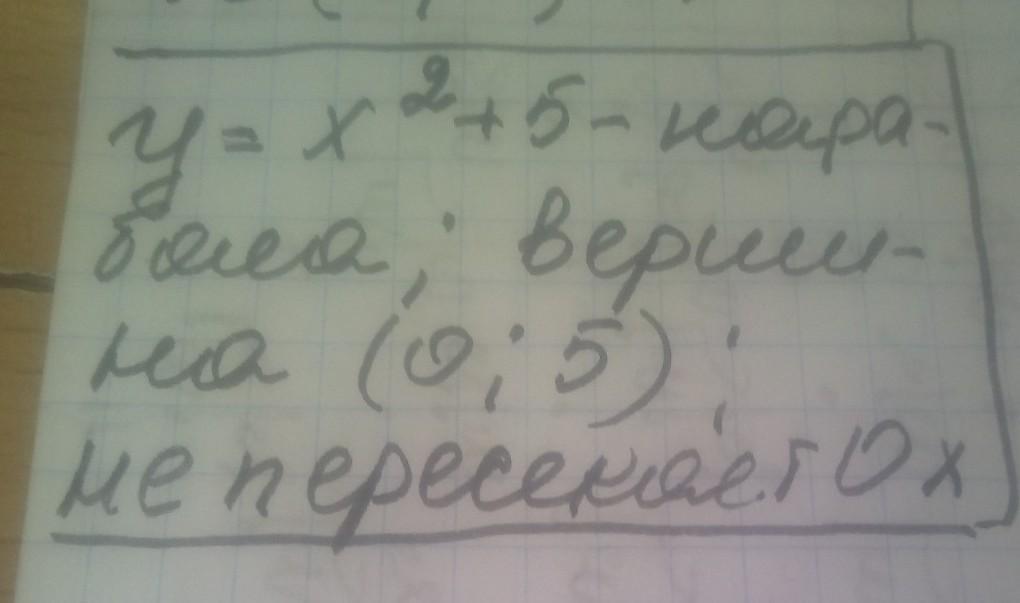 y = x² + 5 - пара-
бола; верши-
на (0; 5);
не пересекает Ox